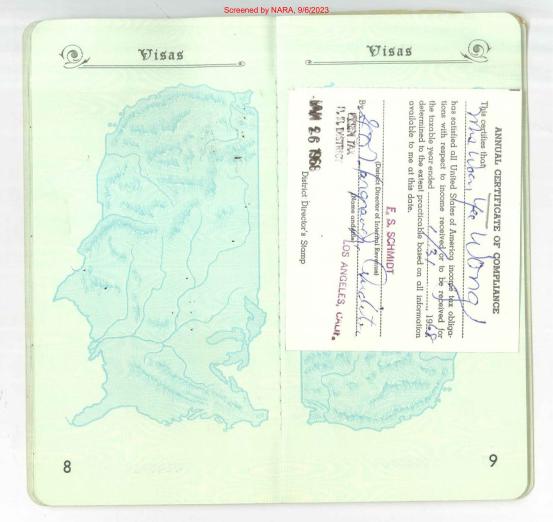 Screened by NARA, 9/6/2023
Visas
Visas
ANNUAL CERTIFICATE OF COMPLIANCE
This certifies that
Wong
has satisfied all United States of America income tax obliga-
tions with respect to income received or to be received for
the taxable year ended 1968
determined to the extent practicable based on all information
available to me at this date.
E. S. SCHMIDT
(District Director of Internal Revenue)
By
(Name and title)
LOS ANGELES, CALIF.
DISTRICT
JAN 26 1968
District Director's Stamp
8
9